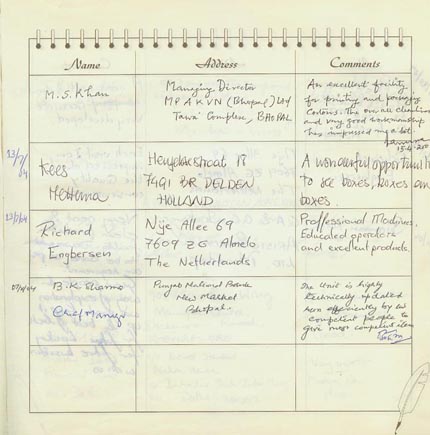 Name Address Comments
M.S. Khan
Managing Director
MPAKVN (Bhopal) Ltd
"Tawa" Complex, BHOPAL
An excellent facility
for printing and packaging
Cartons. The overall cleanliness
and very good workmanship
has impressed me a lot.
15.4.200
13/7/04
Kees
Hettema
7491 BR DELDEN
HOLLAND
A wonderful opportunity
to see boxes, boxes and
boxes.
13/7/04
Richard
Engbersen
Nije Allee 69
7609 ZG Almelo
The Netherlands
Proffessional Machines.
Educated operators
and excellent products.
B.K. Sharma
Chief Manager
Punjab National Bank
New Market
Bhopal.
The Unit is highly
technically updated
run efficiently by
competent people to
give most competent